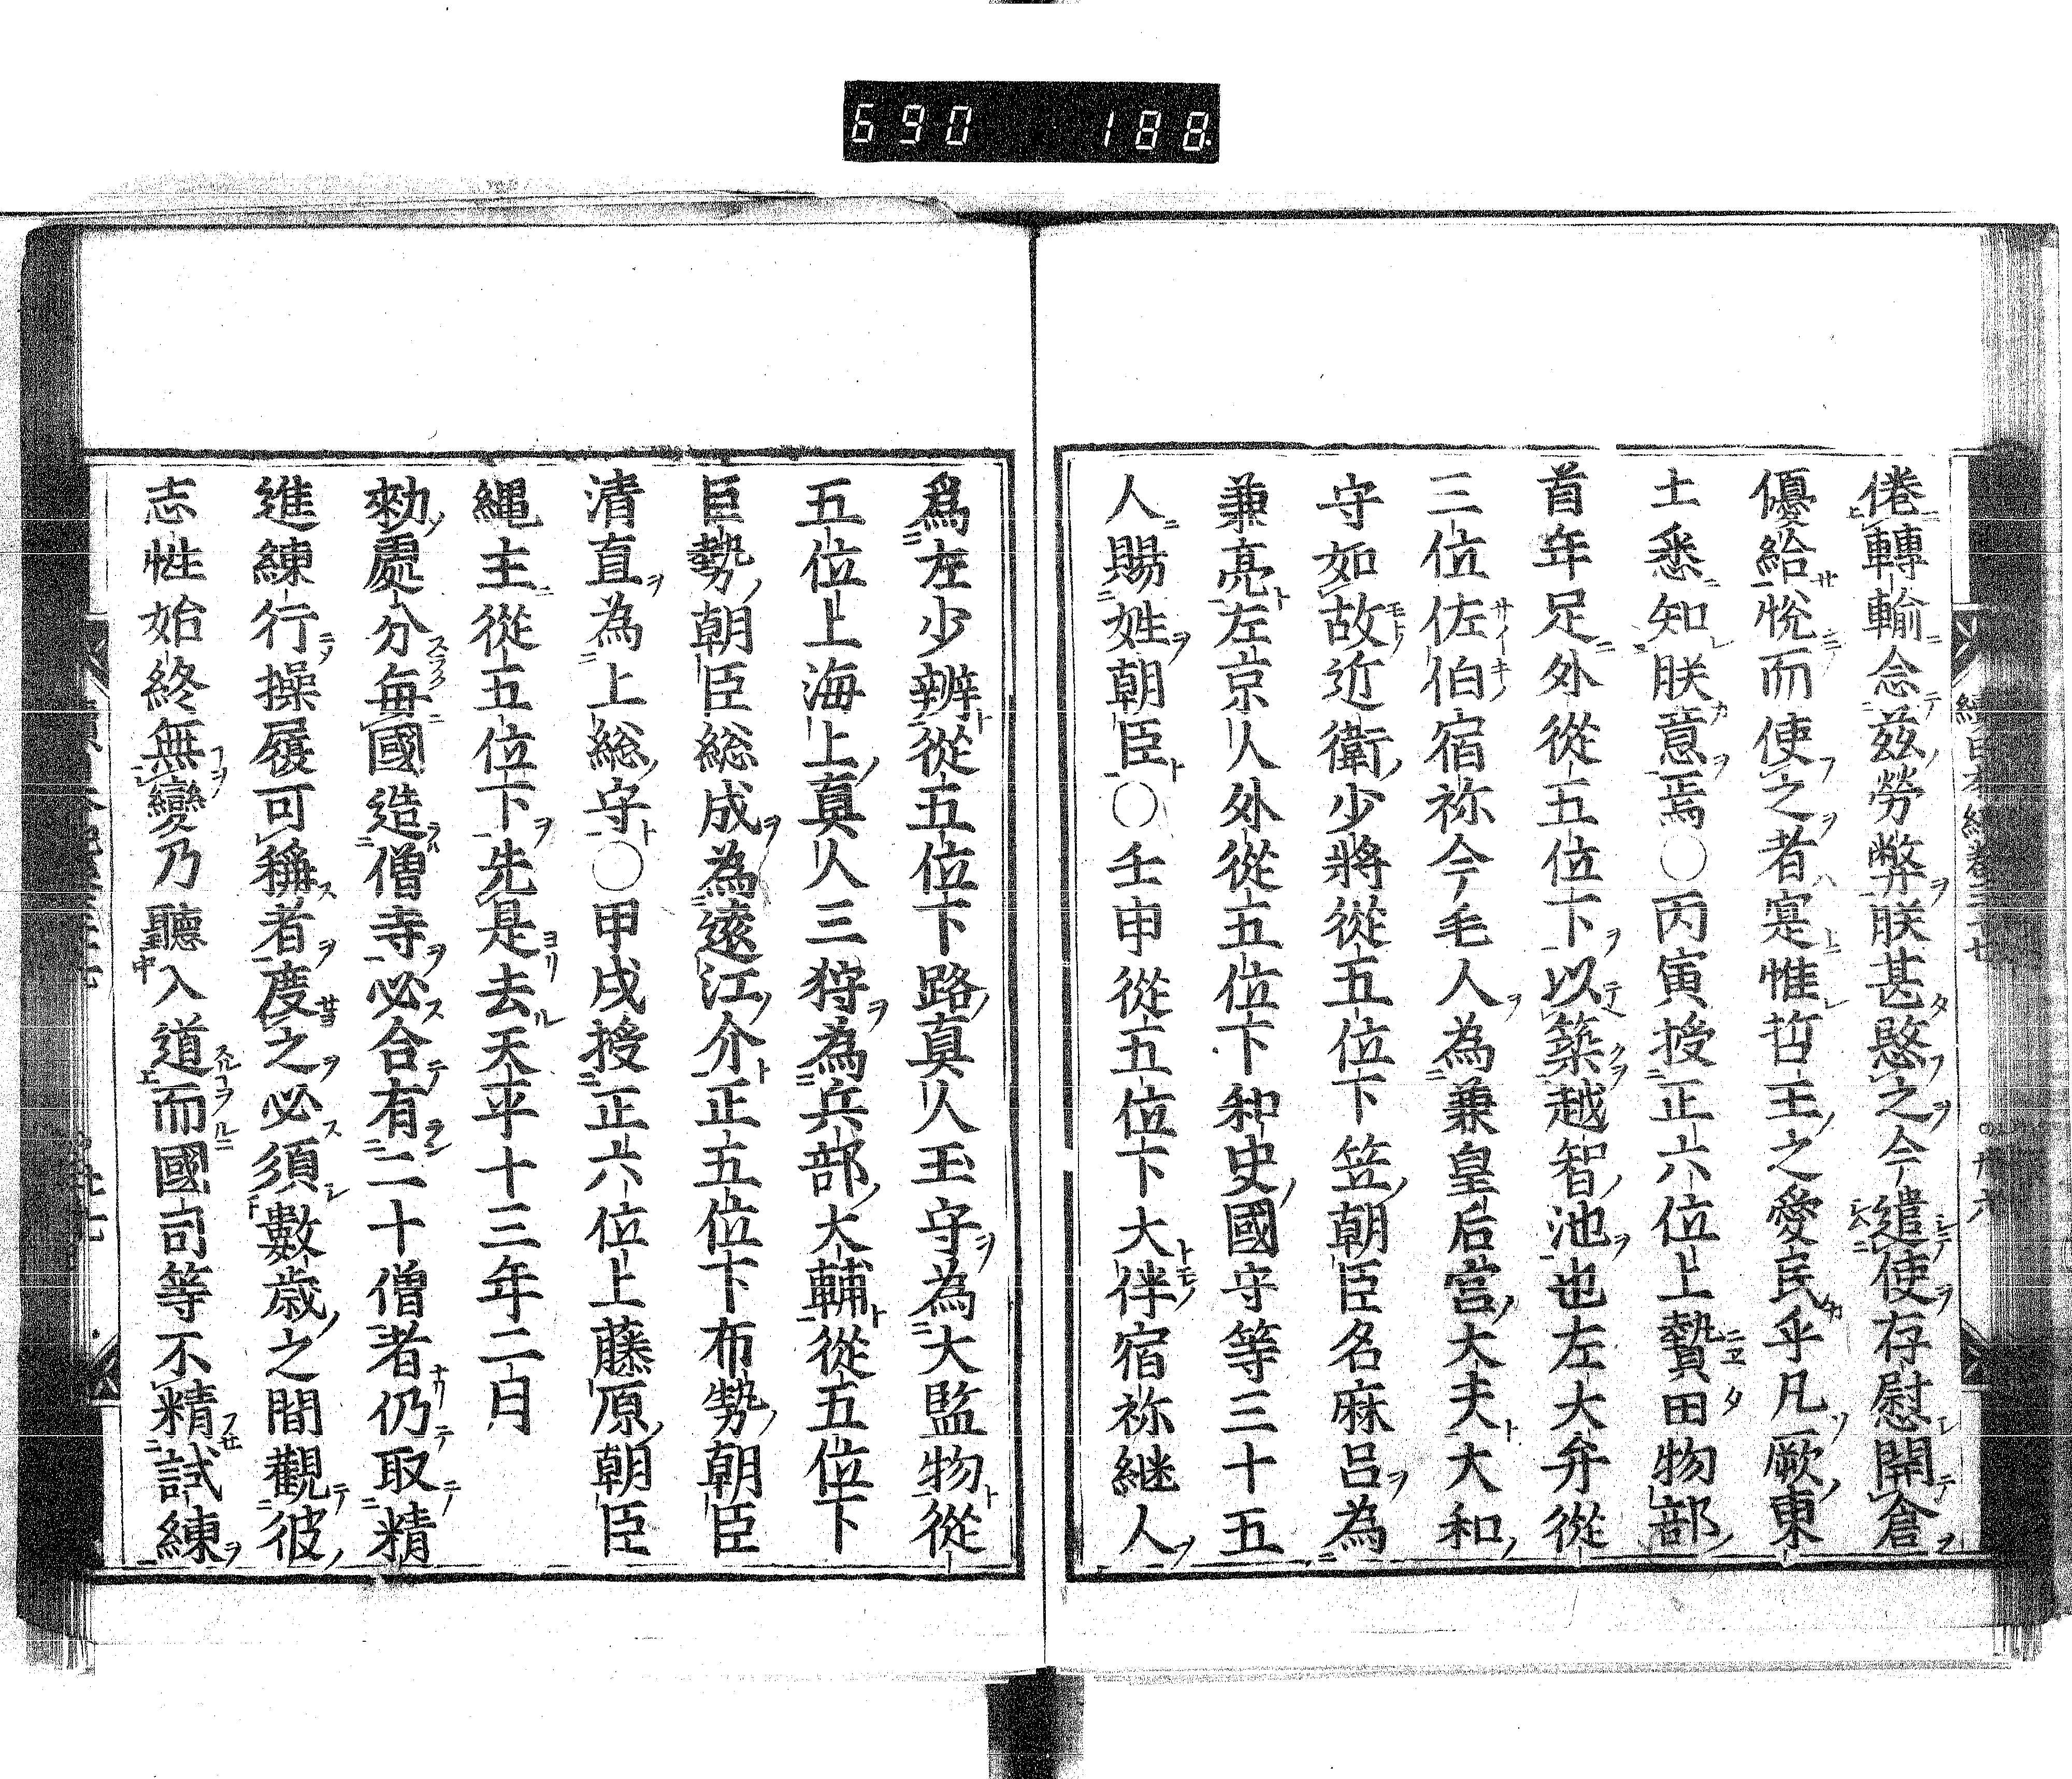 690 188
倦轉輸念茲勞弊朕甚愍之今遣使存慰開倉
優給悅而使之者寔惟哲王之愛民乎凡厥東
土悉知朕意焉○丙寅授正六位上贄田物部
首年足外從五位下以築越智池也左大弁從
三位佐伯宿祢今毛人為兼皇后宮大夫大和
守如故近衛少將從五位下笠朝臣名麻呂為
兼亮左京人外從五位下和史國守等三十五
人賜姓朝臣○壬申從五位下大伴宿祢継人
爲左少辨從五位下路真人玉守為大監物從
五位上海上真人三狩為兵部大輔從五位下
巨勢朝臣総成為遠江介正五位下布勢朝臣
清直為上総守○甲戌授正六位上藤原朝臣
繩主從五位下先是去天平十三年二月
勑處分每國造僧寺必合有二十僧者仍取精
進練行操履可稱者度之必須數歲之間觀彼
志性始終無變乃聽入道而國司等不精試練